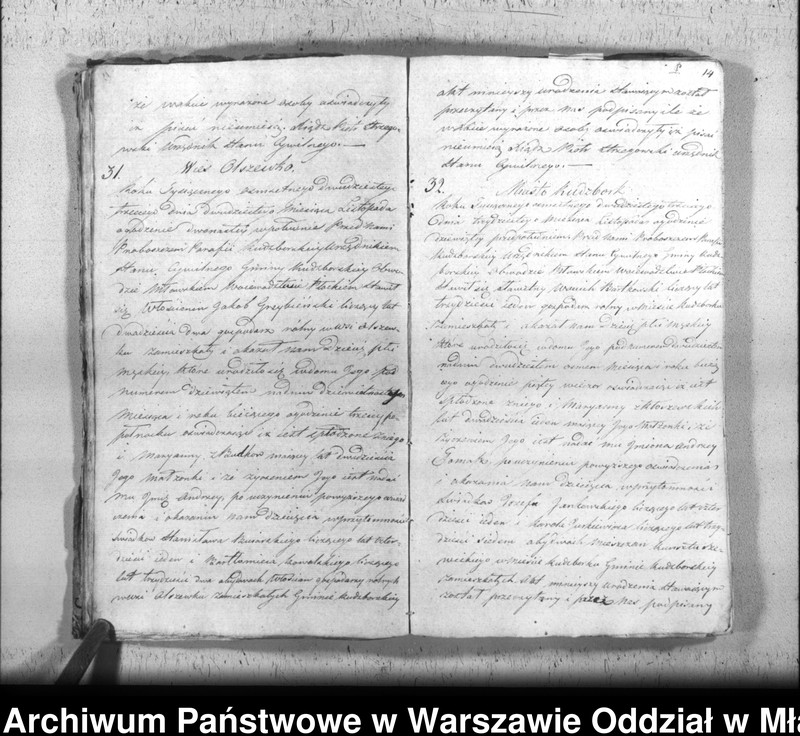 że wokuie wyrażone osoby oświadczyły
iż pisać nieumieją Xiądz Piotr
wski Urzędnik Stanu Cywilnego. —
31. Wieś Olszewko.
Roku Tysiącznego osmsetnego dwudziestego
trzeciego dnia dwudziestego Miesiąca Listopada
ogodzinie dwónastej wpołudnie Przed Nami
Proboszczem Parafii Kudzborskiej Urzędnikiem
Stanu Cywilnego Gminy Kudzborskiej Obwo-
dzie Mławskim Województwie Płockim stawił
się Włościanin Jakób Grzybiciński liczący lat
dwadzieścia dwa gospodarz rolny w wsi Olszew-
ku zamieszkały i okazał nam Dziecię płci
męzkiej które urodziło się w domu Jego pod
numerem dziewiątym na dniu
Miesiąca i roku bieżącego ogodzinie trzeciej po
północku oświadczając iż jest spłodzone z niego
i Maryanny z maiącej lat dwadzieścia
Jego małżonki i że życzeniem Jego jest nadać
mu Jmię Andrzey, po uczynieniu powyższego oświad-
czenia i okazaniu nam dziecięcia wprzytomności
Świadków Stanisława liczącego lat czter-
dzieści ieden i Bartłomieia Kowalskiego liczącego
lat trzydzieści dwa obydwóch Włościan gospodarzy rolnych
wewsi Olszewku zamieszkałych Gminie Kudzborskiej
14
akt ninieyszy urodzenia Stawaiącym został
przeczytany i przez nas podpisany ile że
wokuie wyrażone osoby oświadczyły iż pisać
nieumieią Xiądz Piotr Urzędnik
Stanu Cywilnego. —
32. Miasto Kudzbork
Roku Tysiącznego osmsetnego dwudziestego trzeciego
Dnia trzydziestego Miesiąca Listopada ogodzinie
dziewiątey przedpołudniem Przed Nami Proboszczem Parafii
Kudzborskiey Urzędnikiem Stanu Cywilnego Gminy Kudz-
borskiej Obwodzie Mławskim Województwie Płockim
Stawił się Woyciech Bartkowski liczący lat
trzydzieści ieden gospodarz rolny wmieście Kudzborku
zamieszkały i okazał nam Dziecię płci męzkiej
które urodziło się wdomu Jego pod numerem dwudziestym
na dniu dwudziestym osmem Miesiąca i roku bieżą-
cego ogodzinie wieczor oświadczaiąc iż iest
spłodzone z niego i Maryanny
lat dwadzieścia ieden maiącey Jego małżonki i że
życzeniem Jego iest nadać mu Jmiona Andrzey
Tomasz, po uczynieniu powyższego oświadczenia
i okazaniu nam dziecięcia wprzytomności
Świadków Józefa Jankowskiego liczącego lat czter-
dzieści ieden i Karola liczącego lat trzy-
dzieści siedem obydwóch Mieszczan kunsztu sze-
wckiego wmieście Kudzborku Gminie Kudzborskiej
zamieszkałych Akt ninieyszy urodzenia Stawaiącym
został przeczytany i przez nas podpisany
Archiwum Państwowe w Warszawie Oddział w Mła